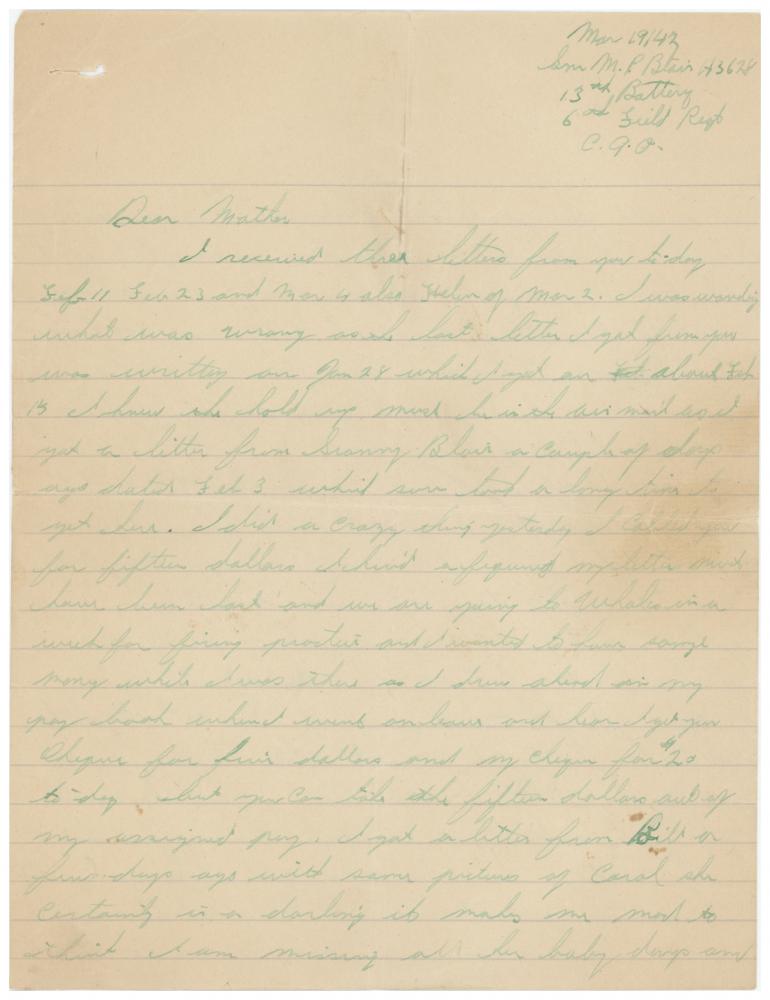 Mar 19/42
Gnr M. P Blair H3628
13th Battery
6th Field Regt
C. A. O.
Dear Mother
I received three letters from you to-day
Feb 11 Feb 23 and Mar 4 also Helen of Mar 2. I was wondring
what was wrong as the last letter I got from you
was written on Jan 28 which I got on about Feb
15 I knew the hold up must be in the air mail as I
got a letter from Granny Blair a couple of days
ago dated Feb 3 which sure took a long time to
get here. I did a crazy thing yesterday I cabled you
for fifteen dollars I figured my letter must
have been lost and we are going to Whales in a
week for firing practice and I wanted to have some
money while I was there as I drew ahead in my
pay book when I went on leave and hear I get your
cheque for five dollars and my cheque for $20
to-day but you can take the fifteen dollars out of
my assigned pay. I got a letter from Bill a
few days ago with some pictures of Carol she
certainly is a darling it makes me mad to
think I am missing all her baby days and